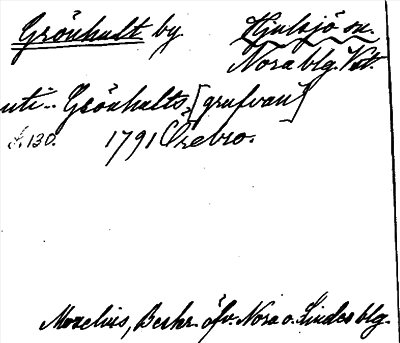 Grönhult by Hjulsjö sn.
Nora blg. Vstm.
uti Grönhults [grufvan]
s. 130. 1791 Örebro.
Morelius, Beskr. öfv. Nora o. Lindes blg.